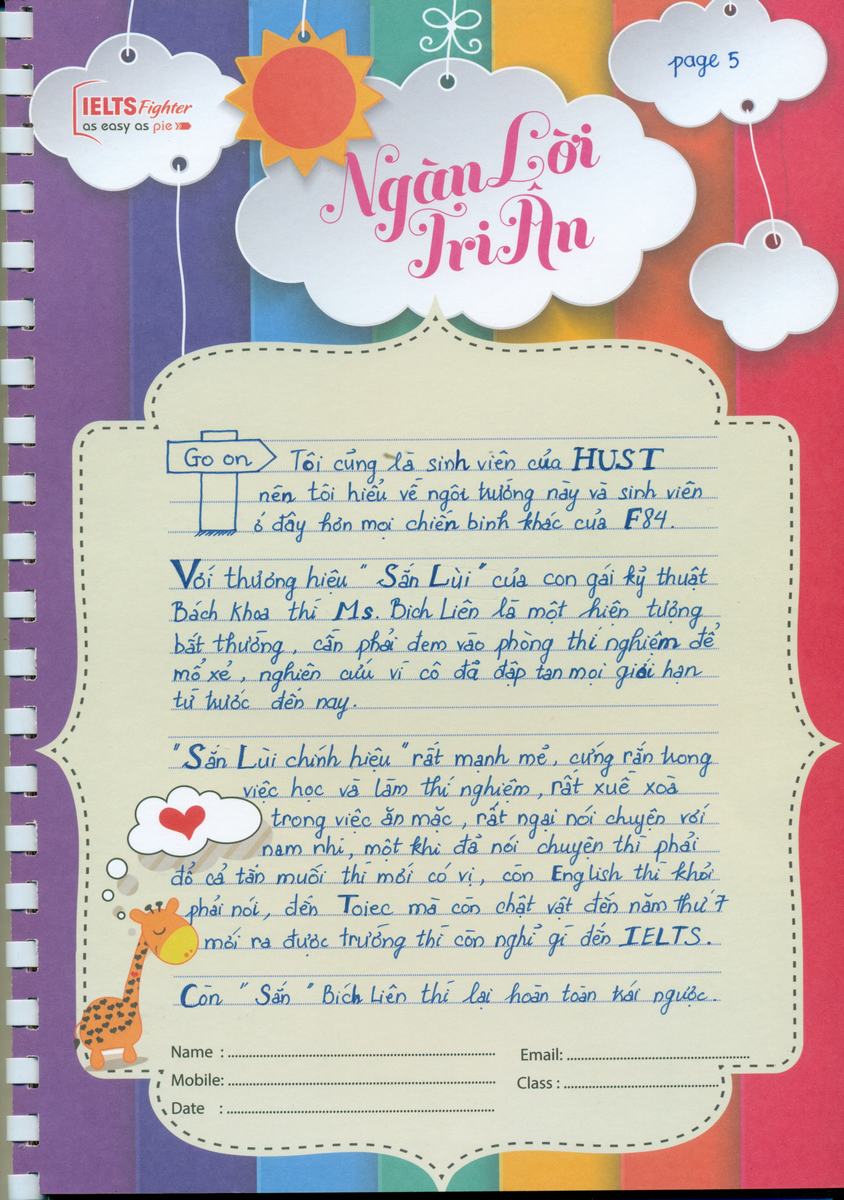 IELTS Fighter
as easy as pie
page 5
Ngàn Lời
Tri Ân
Go on
Tôi cũng là sinh viên của HUST
nên tôi hiểu về ngôi trường này và sinh viên
ở đây hơn mọi chiến binh khác của F84.
Với thương hiệu " Sắn Lùi " của con gái kỹ thuật
Bách Khoa thì Ms. Bích Liên là một hiện tượng
bất thường, cần phải đem vào phòng thí nghiệm để
mổ xẻ, nghiên cứu vì cô đã đập tan mọi giới hạn
từ trước đến nay.
"Sắn Lùi chính hiệu" rất mạnh mẻ, cứng rắn trong
việc học và làm thí nghiệm, rất xuề xoà
trong việc ăn mặc, rất ngại nói chuyện với
nam nhi, một khi đã nói chuyện thì phải
đổ cả tấn muối thì mới có vị, còn English thì khỏi
phải nói, đến Toiec mà còn chật vật đến năm thứ 7
mới ra được trường thì còn nghỉ gì đến IELTS.
Còn " Sắn " Bích Liên thì lại hoàn toàn trái ngược.
Name :
Email:
Mobile:
Class :
Date :